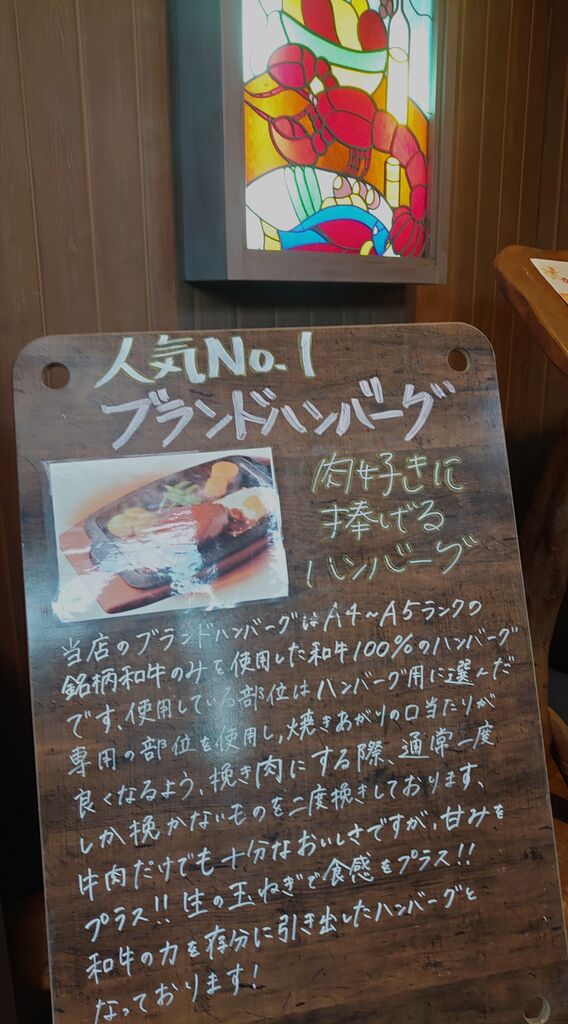 人気No.1
ブランドハンバーグ
肉好きに
捧げる
ハンバーグ
当店のブランドハンバーグはA4~A5ランクの
銘柄和牛のみを使用した和牛100%のハンバーグ
です、使用している部位はハンバーグ用に選んだ
専用の部位を使用し、焼きあがりの口当たりが
良くなるよう、挽き肉にする際、通常一度
しか挽かないものを二度挽きしております、
牛肉だけでも十分なおいしさですが、甘みを
プラス!!生の玉ねぎで食感をプラス!!
和牛の力を存分に引き出したハンバーグと
なっております!